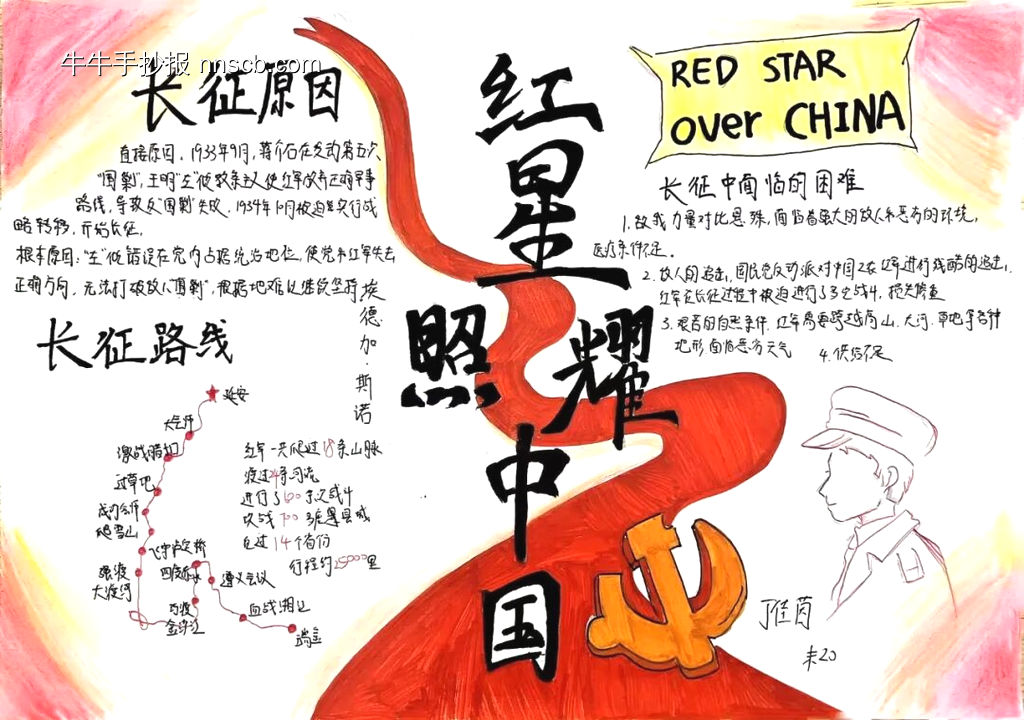 牛牛手抄报 nnscb.com
长征原因
直接原因，1933年9月，蒋介石在发动第五次
"围剿"，王明"左"倾教条主义使红军放弃正确军事
路线，导致反"围剿"失败，1934年10月被迫实行战
略转移，开始长征。
根本原因："左"倾错误在党内占据统治地位，使党和红军失去
正确方向，无法打破敌人"围剿"，根据地难以继续坚持
埃德加·斯诺
长征路线
延安
大会师
激战腊子口
过草地
爬雪山
强渡
大渡河
飞夺泸定桥
四渡赤水
遵义会议
巧渡
金沙江
血战湘江
瑞金
红军一共爬过18条山脉
渡过24条河流
进行了600多次战斗
攻战700多座县城
14个省份
行程约25000里
红星照耀中国
RED STAR
OVER CHINA
长征中面临的困难
1.敌我力量对比悬殊，面临着强大的敌人和恶劣的环境，
医疗条件
2.敌人的追击，国民党反动派对中国工农红军进行残酷的追击，
红军在长征过程中被迫进行了多次战斗，损失惨重
3.艰苦的自然条件，红军需要跨越高山、大河、草地等各种
地形，面临恶劣天气
4.供给不足